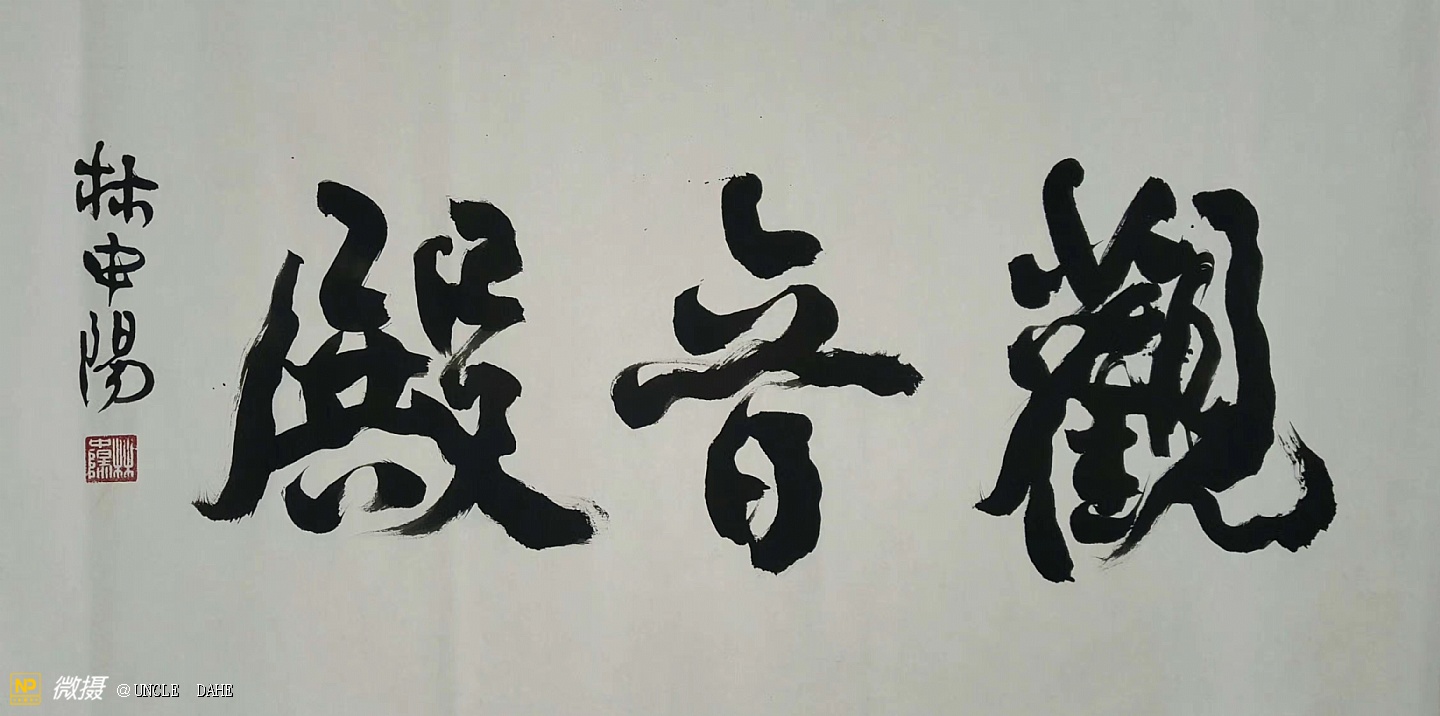 觀音殿
林中陽
林中陽
NP 微摄 @UNCLE DAHE